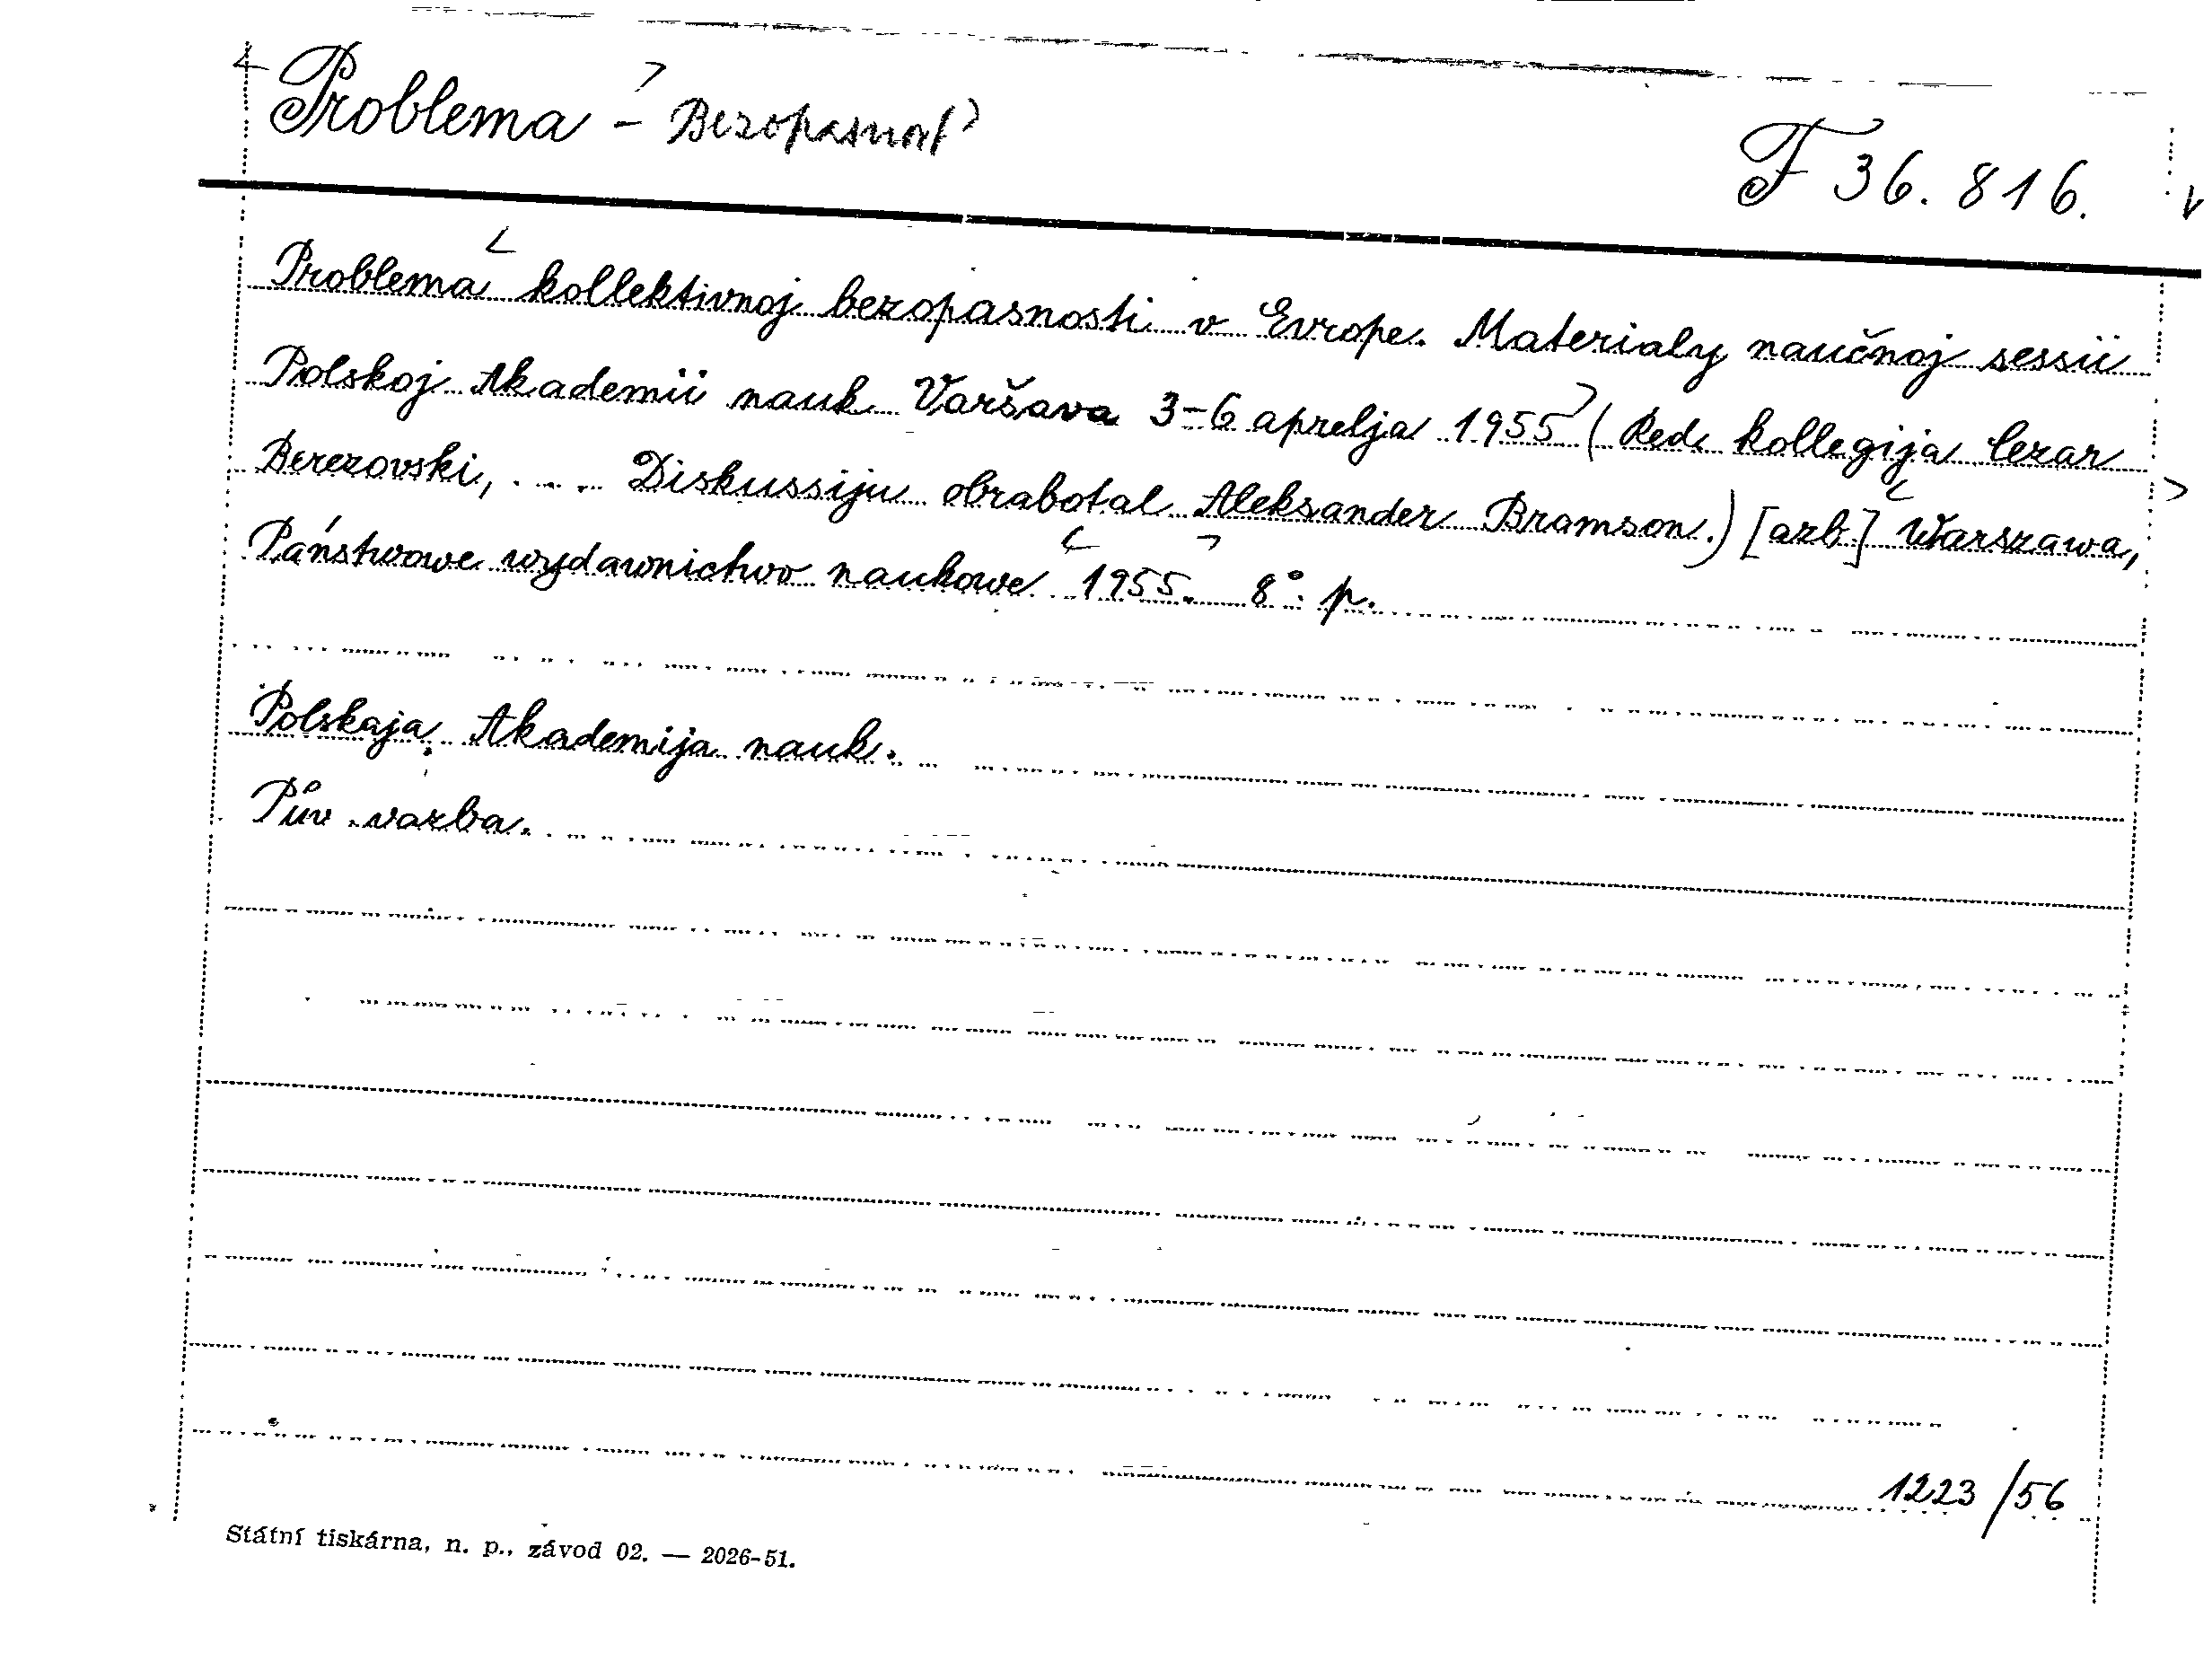 Problema - Bezopasnosť
F 36.816.
Problema kollektivnoj bezopasnosti v Evrope. Materialy naučnoj sessii
Polskoj Akademii nauk Varšava 3-6 aprelja 1955 (Red. kollegija Cezar
Berezovski, .... Diskussiju obrabotal Aleksander Bramson.) [azb.] Warszawa,
Państwowe wydawnictwo naukowe 1955. 8°. p.
Polskaja Akademija nauk.
Pův. vazba.
1223/56
Státní tiskárna, n. p., závod 02. — 2026-51.